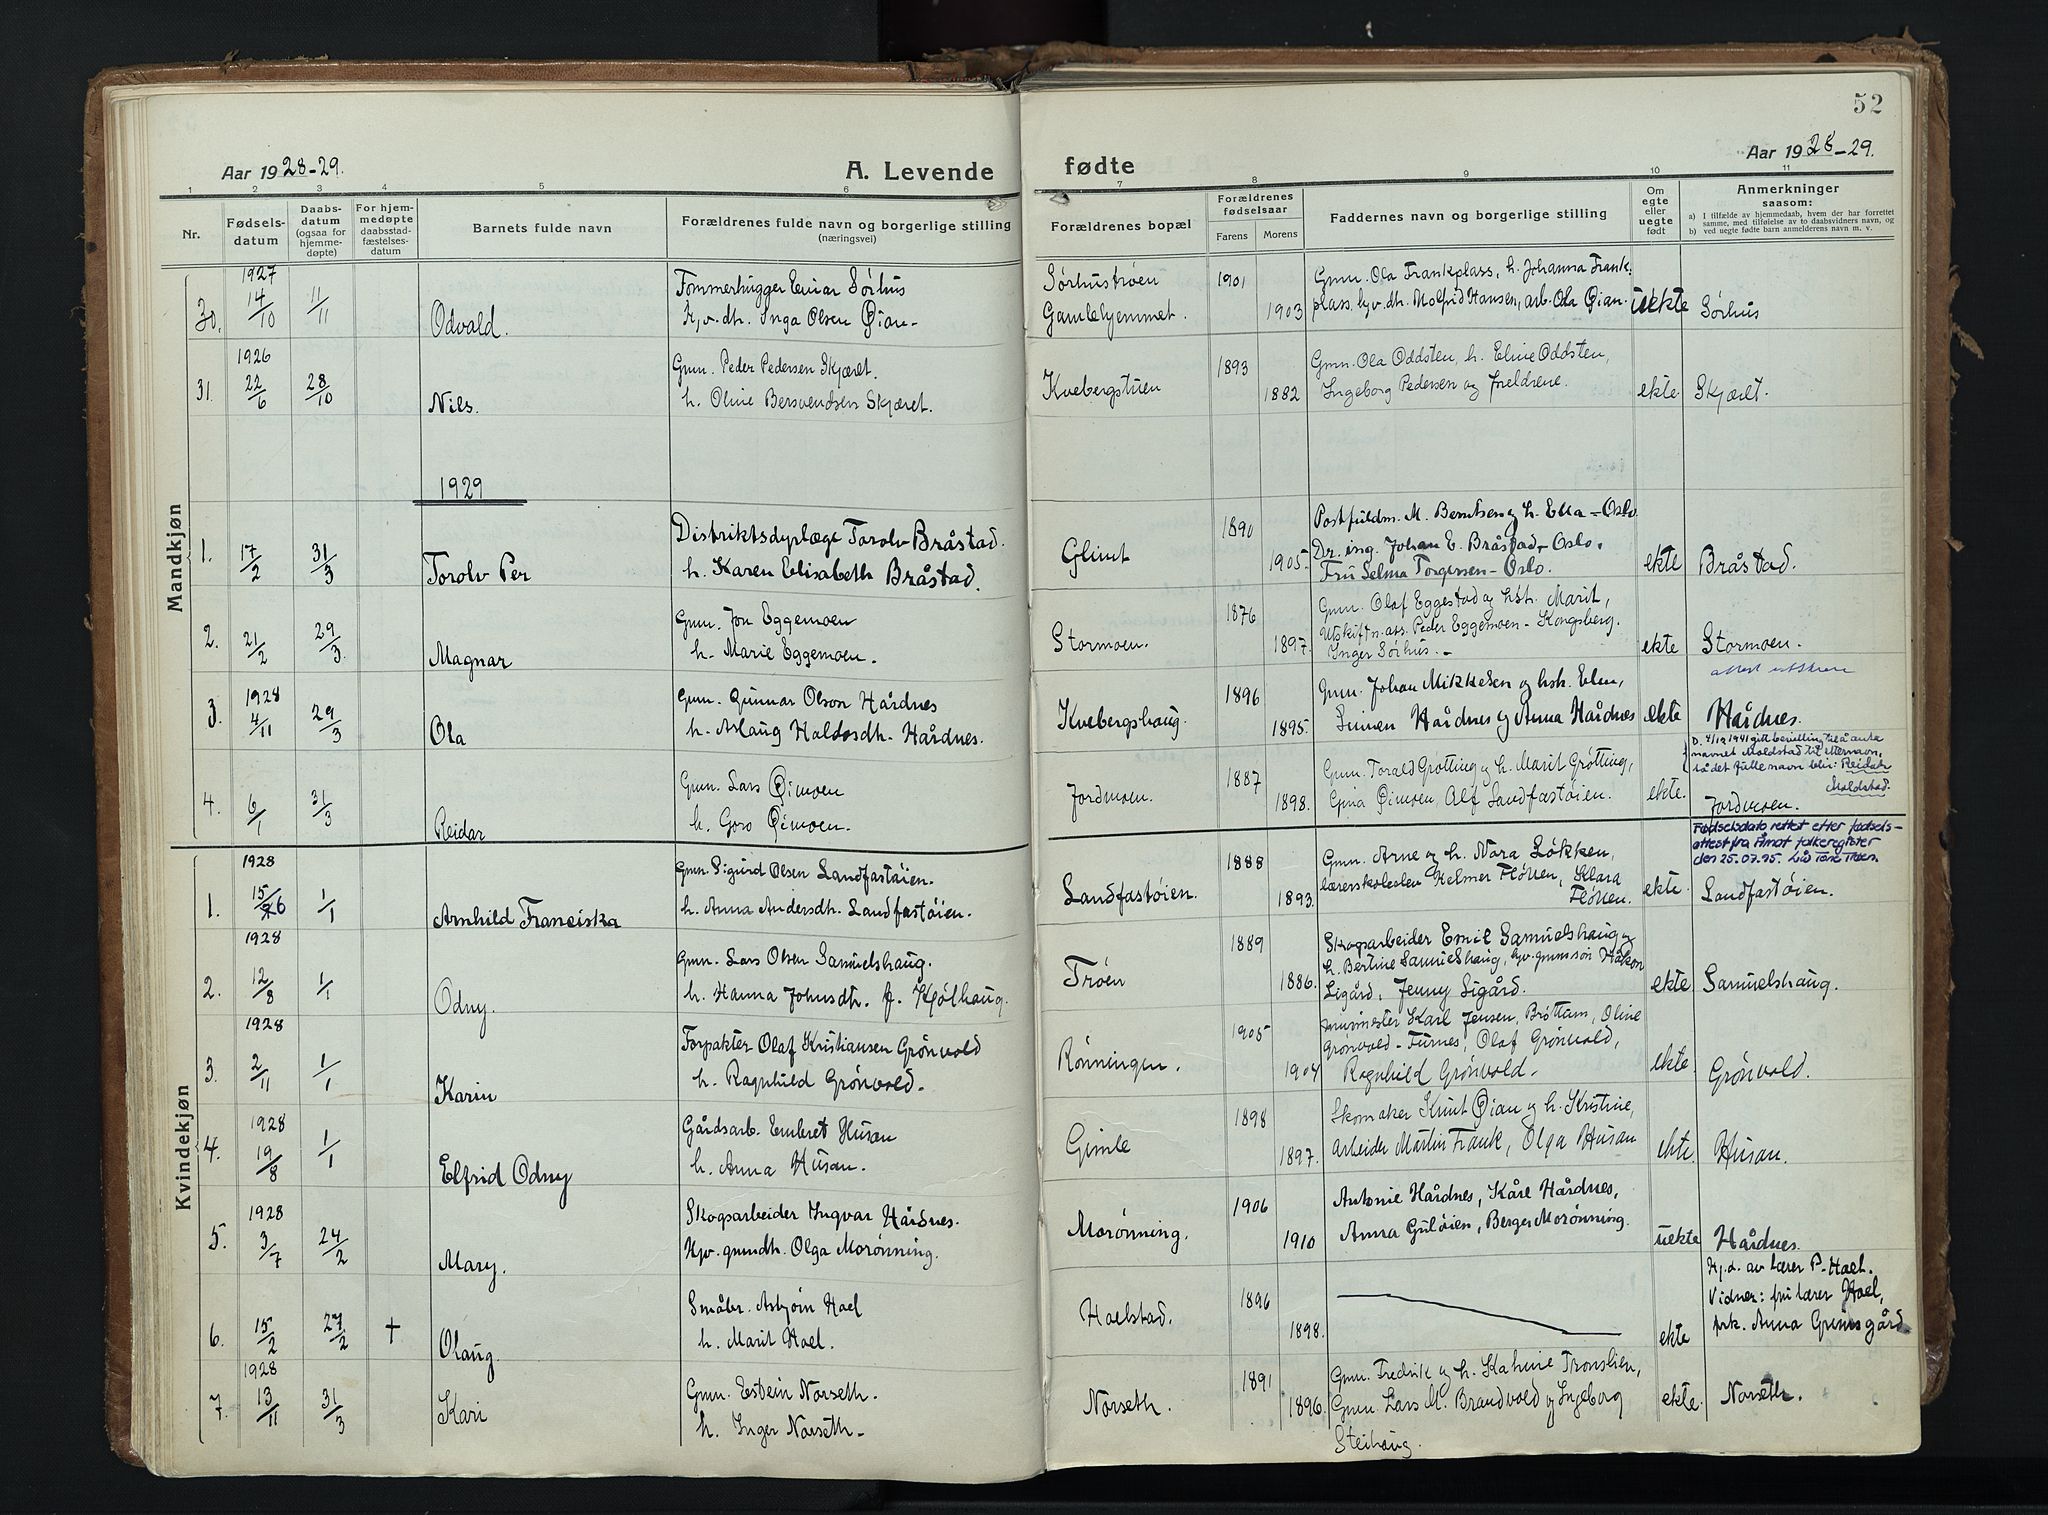 52
Aar 1928-29.
A. Levende
fødte
Aar 1928-29.
1 2 3 4 5 6 7 8 9 10 11
Nr.
Fødsels-
datum
Daabs-
datum
(ogsaa for
hjemme-
døpte)
For hjem-
medøpte
daabsstad-
fæstelses-
datum
Barnets fulde navn
Forældrenes fulde navn og borgerlige stilling
(næringsvei)
Forældrenes bopæl
Forældrenes
fødselsaar
Farens Morens
Faddernes navn og borgerlige stilling
Om
egte
eller
uegte
født
Anmerkninger
saasom:
a) I tilfælde av hjemmedaab, hvem der har forrettet
samme, med tilføielse av to daabsvidners navn, og
b) ved uegte fødte barn anmelderens navn m. v.
Mandkjøn
30. 1927 14/10 11/11 Odvald.
Tømmerhugger Einar Sørhus
Pv. dh. Inga Olsen Øian-
Sørhustrøen
Gamlehjemmet.
1901
1903
Gmn. Ola Frankplass, h. Johanna Frank-
plass, hv. dh. Molfrid Hansen, arb. Ola Øian.
uekte
Sørhus
31. 1926 22/6 28/10 Nils.
Gmn. Peder Pedersen Skjæret.
h. Oline Bersvendsen Skjæret.
Kvebergstuen
1893
1882
Gmn. Ola Oddsten, h. Eline Oddsten,
Ingeborg Pedersen og foreldrene.
ekte
Skjæret.
1929
1. 17/2 31/3 Torolv Per
Distriktsdyrlæge Torolv Bråstad.
h. Karen Elisabeth Bråstad.
Glimt
1890
1905.
Postfuldm. M. Berntsen og h. Ella - Oslo
Dr. ing. Johan E. Bråstad - Oslo.
Fru Selma Torgersen - Oslo.
ekte
Bråstad.
2. 21/2 29/3 Magnar
Gmn. Jon Eggemoen
h. Marie Eggemoen.
Stormoen.
1876
1897.
Gmn. Olaf Eggestad og hst. Marit,
Utskiftn. ass. Peder Eggemoen - Kongsberg.
Inger Sørhus. -
ekte
Stormoen.
3. 1928 4/11 29/3 Ola
Gmn. Gunnar Olson Hårdnes
h. Aslaug Haldosdh. Hårdnes.
Kvebergshaug.
1896
1895.
Gmn. Johan Mikkelsen og hst. Elen,
Simen Hårdnes og Anna Hårdnes
ekte
Hårdnes.
4. 6/1 31/3 Reidar
Gmn. Lars Øimoen
h. Goro Øimoen.
Jordmoen.
1887
1898.
Gmn. Torald Grøtting og h. Marit Grøtting,
Gina Øimoen, Alf Sandfastøien.
ekte.
D. 4/12 1941 gitt bevilling til å anta
navnet Moldstad til etternavn,
så det fulle navn blir: Reidar
Moldstad.
Jordmoen.
Kvindekjøn
1. 1928 15/6 1/1 Arnhild Franciska
Gmn. Sigurd Olsen Sandfastøien.
h. Anna Andersdh. Sandfastøien.
Sandfastøien.
1888
1893.
Gmn. Arne og h. Nora Løkken,
lærerskoleelev Helmer Fløtten, Klara
Fløtten.
ekte.
Fødselsdato rettet etter fødsels-
attest fra Åmot folkeregister
den 25.07.95.
Sandfastøien.
2. 1928 12/8 1/1 Odny.
Gmn. Lars Olsen Samuelshaug.
h. Hanna Johnsdh. f. Kjølhaug.
Trøen
1889
1886.
Skogsarbeider Emil Samuelshaug og
h. Bertine Samuelshaug, hv. grmn.søn Håkon
Sigård, Jenny Sigård.
ekte
Samuelshaug.
3. 1928 2/11 1/1 Karin
Forpakter Olaf Kristiansen Grønvold
h. Ragnhild Grønvold.
Rønningen.
1905
1904
Murmester Karl Jensen, Brøttum, Oline
Grønvold - Furnes, Olaf Grønvold,
Ragnhild Grønvold.
ekte.
Grønvold.
4. 1928 19/8 1/1 Elfrid Odny
Gårdsarb. Embret Husan
h. Anna Husan.
Gimle
1898
1897.
Skomaker Knut Øian og h. Kristine,
arbeider Martin Frank, Olga Husan
ekte.
Husan.
5. 1928 3/7 24/2 Mary.
Skogsarbeider Ingvar Hårdnes.
Hv. grmndh. Olga Morønning.
Morønning.
1906
1910
Antonie Hårdnes, Kåre Hårdnes,
Anna Guløien, Berger Morønning.
uekte
Hårdnes.
6. 15/2 27/2 + Olaug.
Småbr. Asbjørn Hoel
h. Marit Hoel.
Hoelstad.
1896
1898.
ekte
Hj.d. av lærer P. Hoel.
Vidner: fru lærer Hoel,
frk. Anna Grinsgård.
7. 1928 13/11 31/3 Kari
Gmn. Estein Norseth.
h. Inger Norseth.
Norseth.
1891
1896.
Gmn. Fredrik og h. Katrine Tronslien,
Gmn. Lars M. Brandvold og Ingeborg
Steihaug.
ekte.
Norseth.